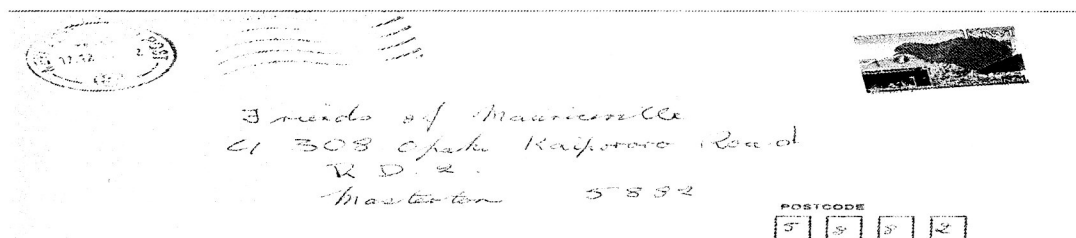 POST
Friends of Mauriceville
C/ 308 Opaki Kaiparoro Road
R D. 2.
Masterton 5882
POSTCODE
5 8 8 2